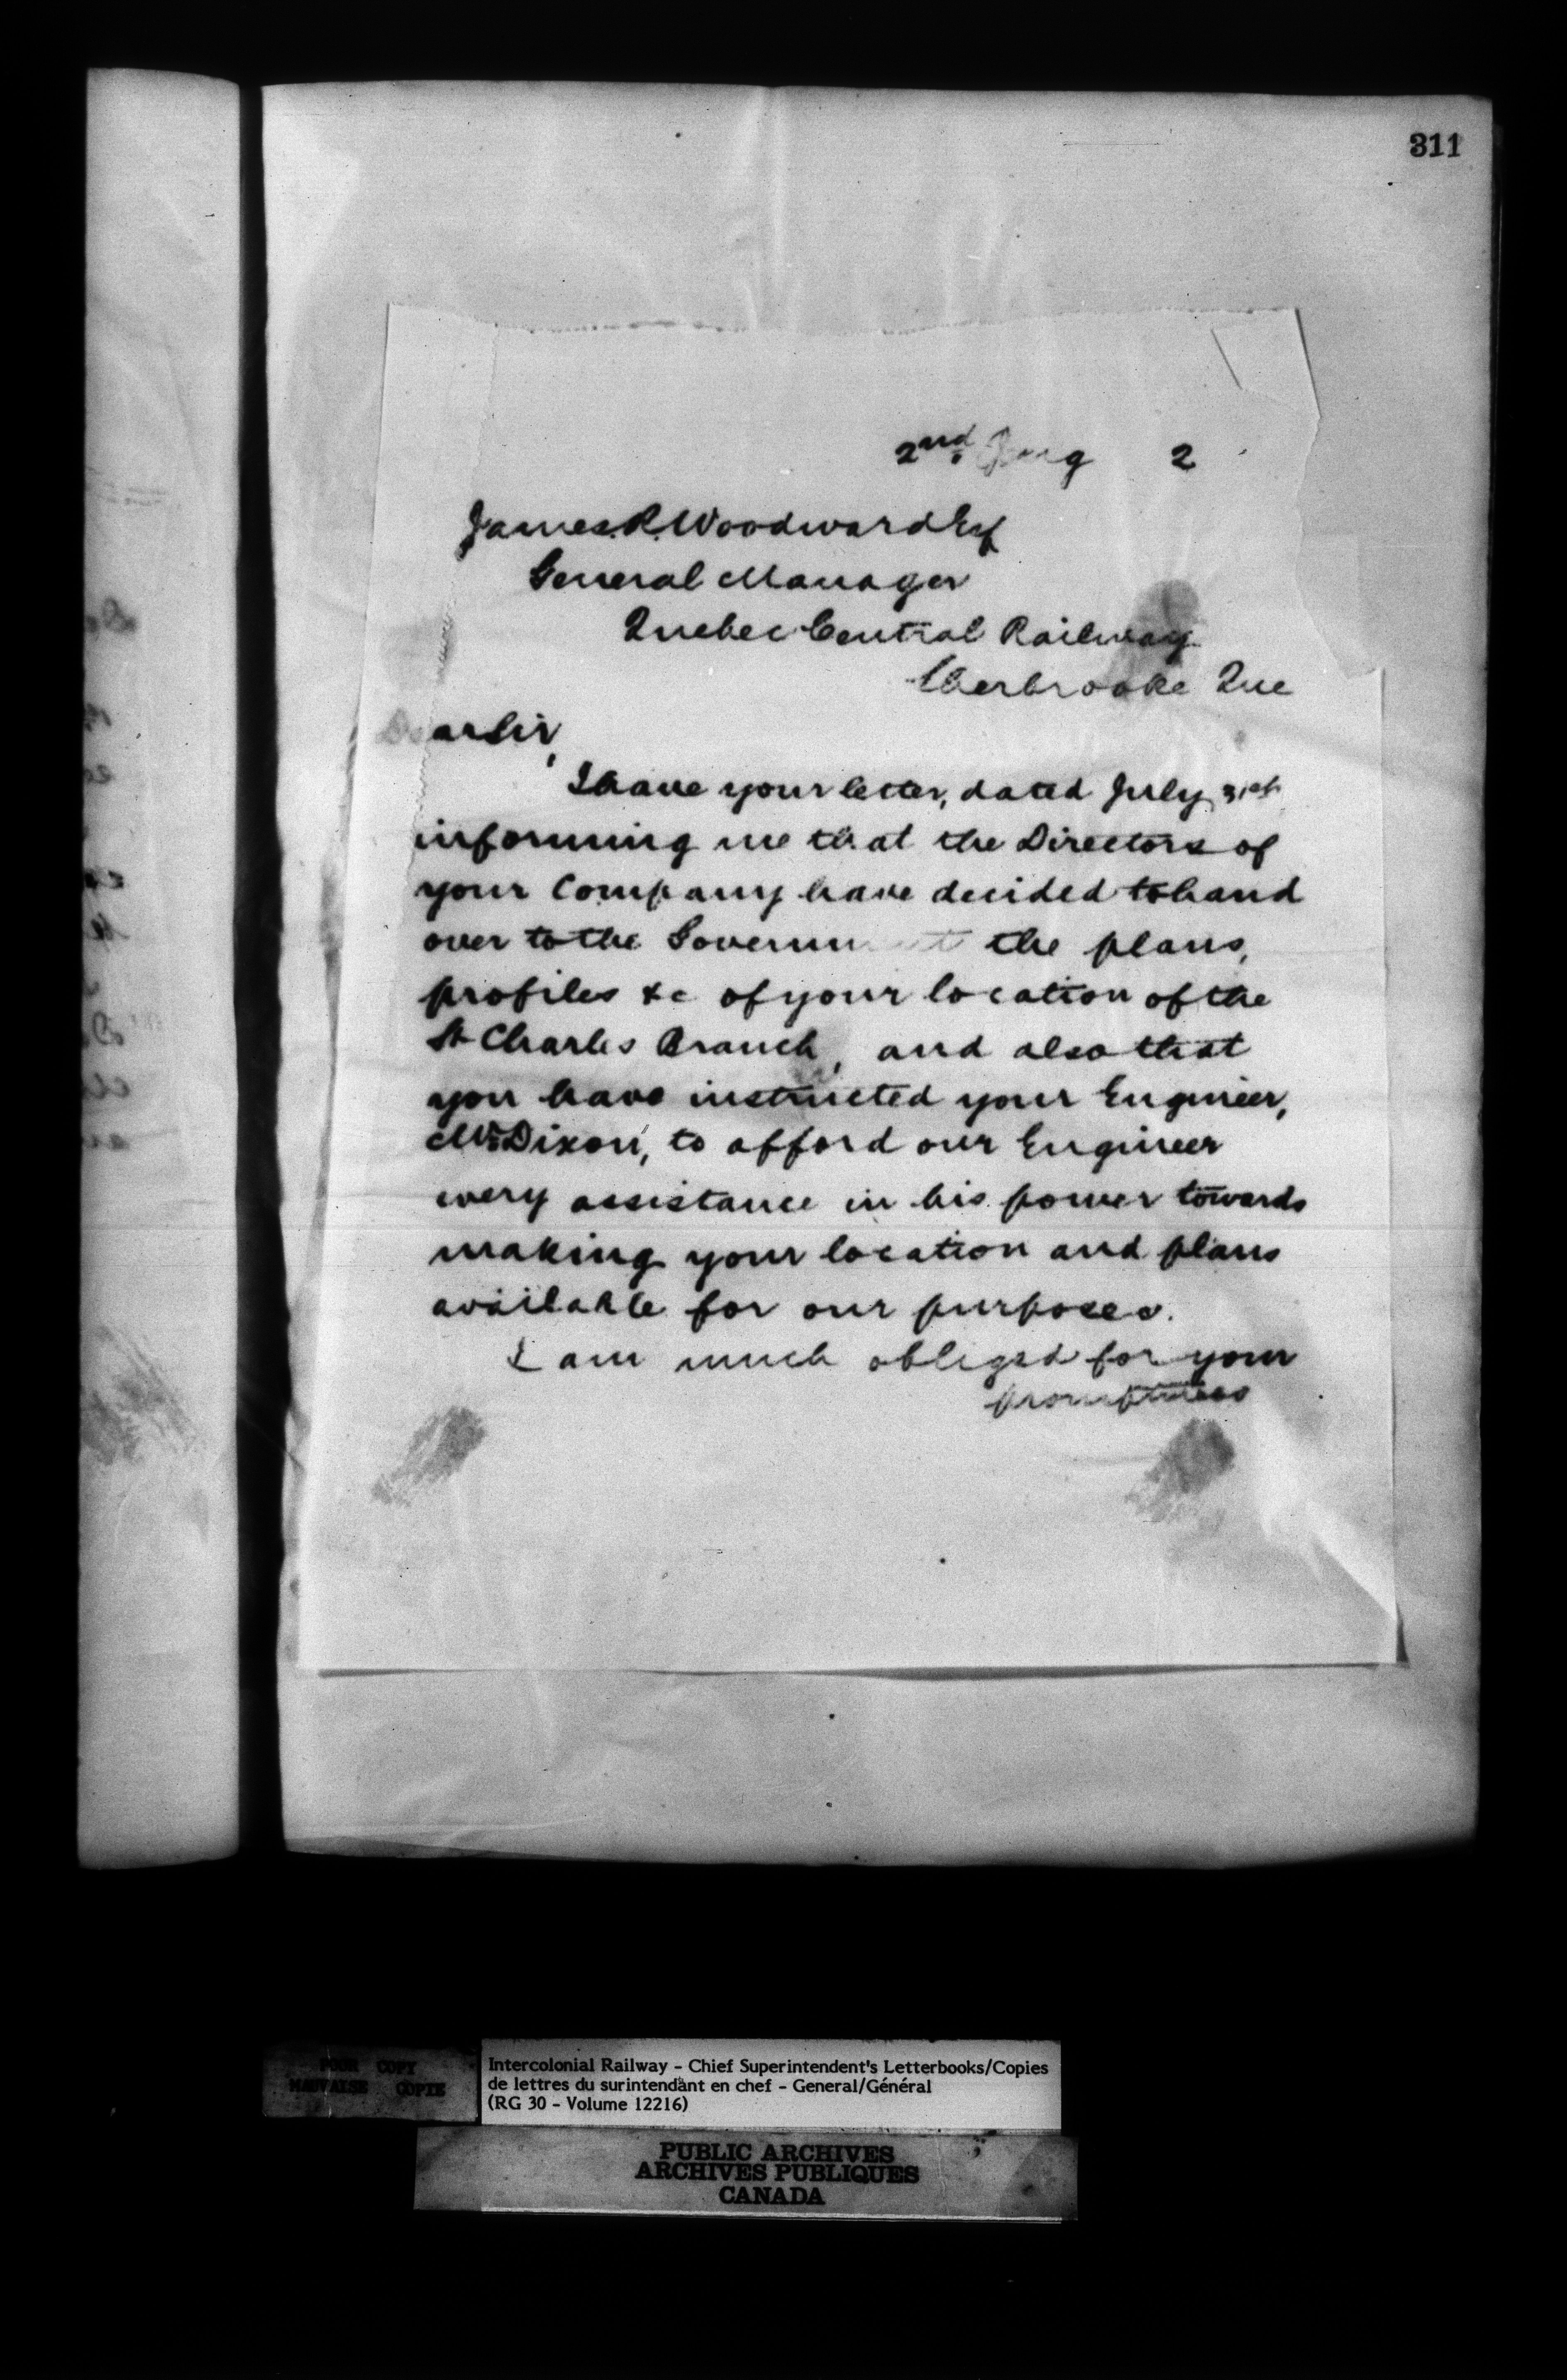 311
2nd. Aug 2
James. R. Woodward Esq
General Manager
Quebec Central Railway
Sherbrooke Que
Dear Sir,
I have your letter, dated July 31st
informing me that the Directors of
your Company have decided to hand
over to the Government the plans,
profiles &c of your location of the
St Charles Branch, and also that
you have instructed your Engineer,
Mr. Dixon, to afford our Engineer
every assistance in his power towards
making your location and plans
available for our purposes.
I am much obliged for your
promptness
POOR COPY
MAUVAISE COPIE
Intercolonial Railway - Chief Superintendent's Letterbooks/Copies
de lettres du surintendant en chef - General/Général
(RG 30 - Volume 12216)
PUBLIC ARCHIVES
ARCHIVES PUBLIQUES
CANADA